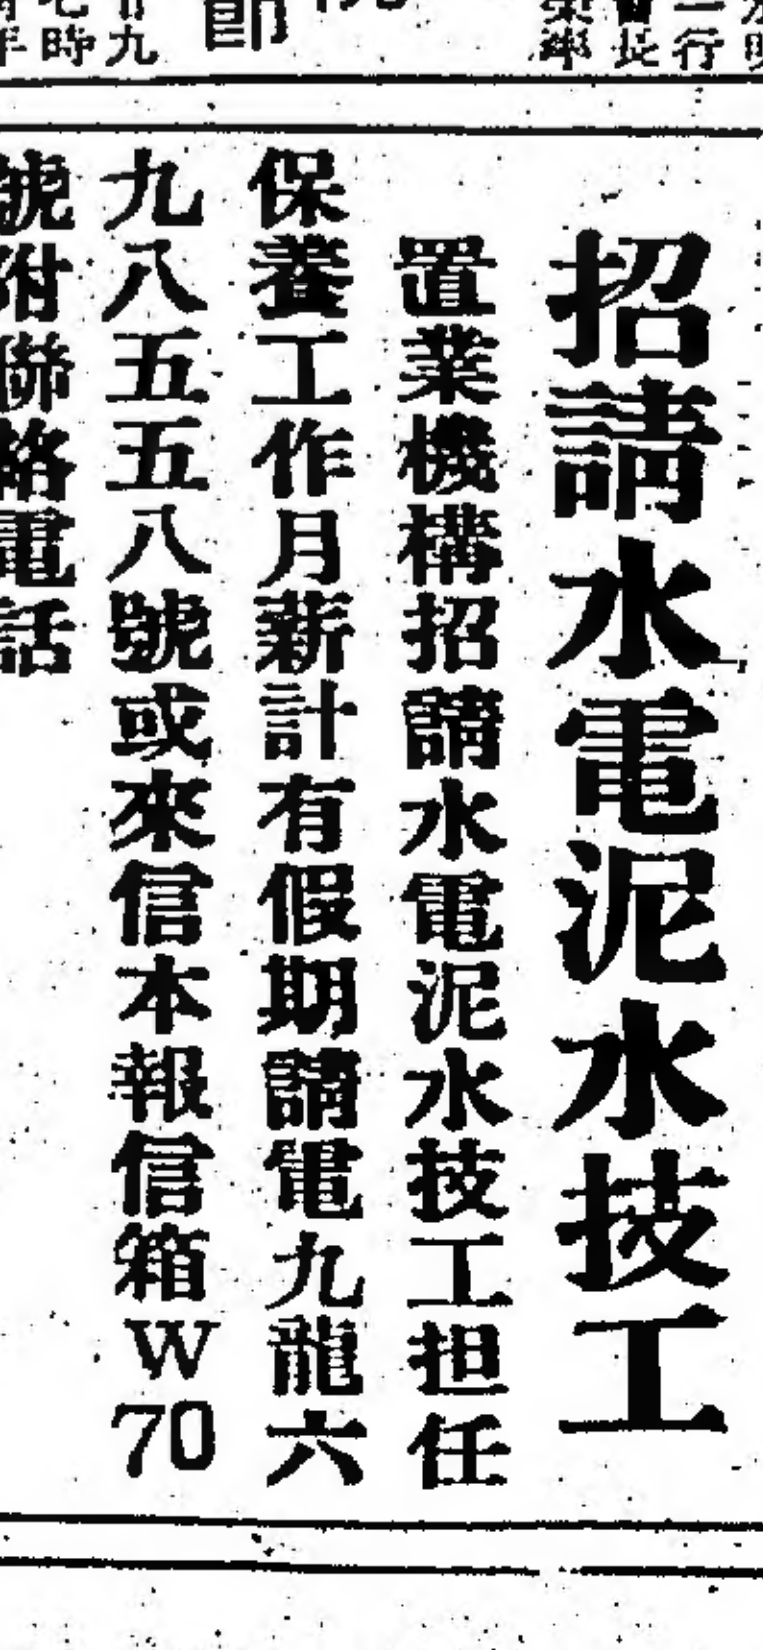 招請水電泥水技工
置業機構招請水電泥水技工担任
保養工作月薪計有假期請電九龍六
九八五五八號或來信本報信箱W70
號附聯絡電話
節
九
時
長
行